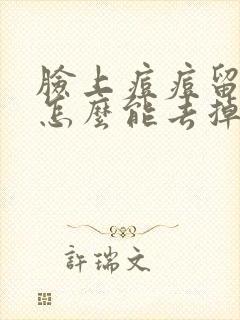 臉上痘痘留
怎麼能去掉
許瑞文